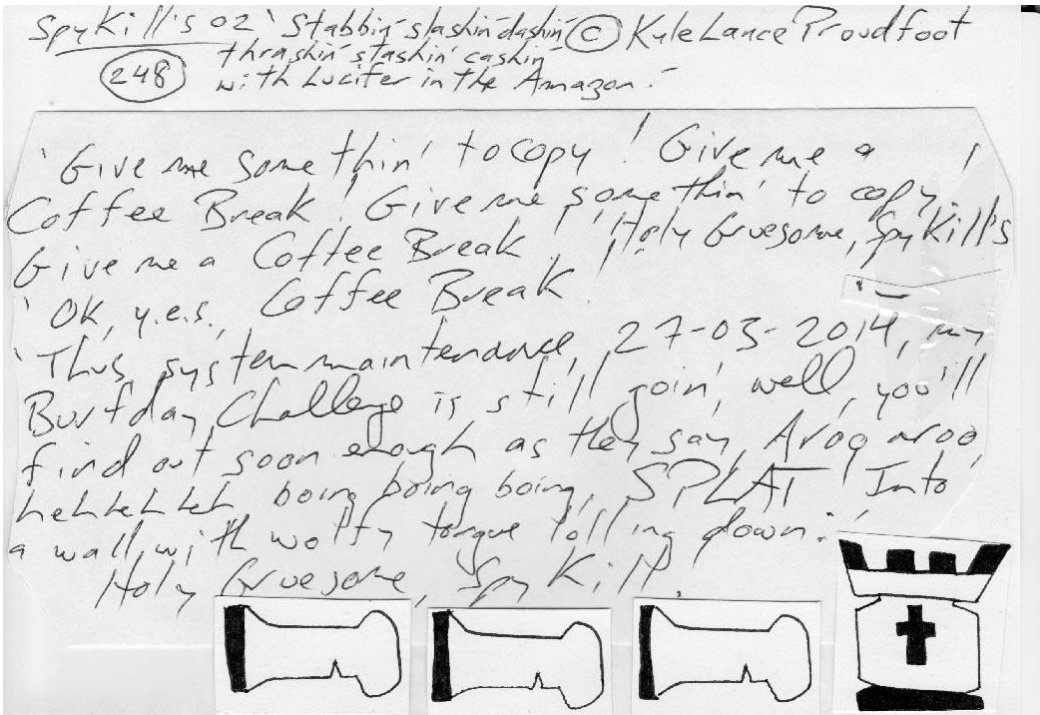 SpyKill's 02 'Stabbin' slashin' dashin' © Kyle Lance Proudfoot
thrashin' stashin' cashin'
248 with Lucifer in the Amazon.'
'Give me somethin' to copy! Give me a
Coffee Break! Give me somethin' to copy!
Give me a Coffee Break!' 'Holy Gruesome, SpyKill's
'OK, y.e.s., Coffee Break.'
'Thus, system maintenance, 27-03-2014, my
Burfday Challenge is still goin', well, you'll
find out soon enough as they say, Aroo aroo,
heh heh heh boing boing boing, SPLAT! Into
a wall, with wolfy tongue lolling down.'
'Holy Gruesome, SpyKill!'